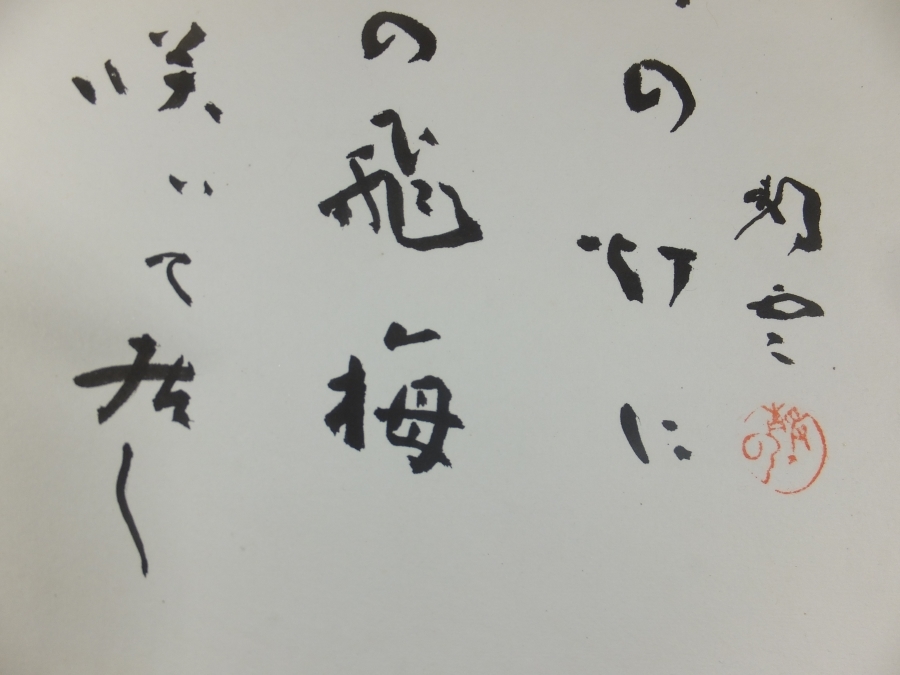 の灯に
の飛梅
咲いて居し